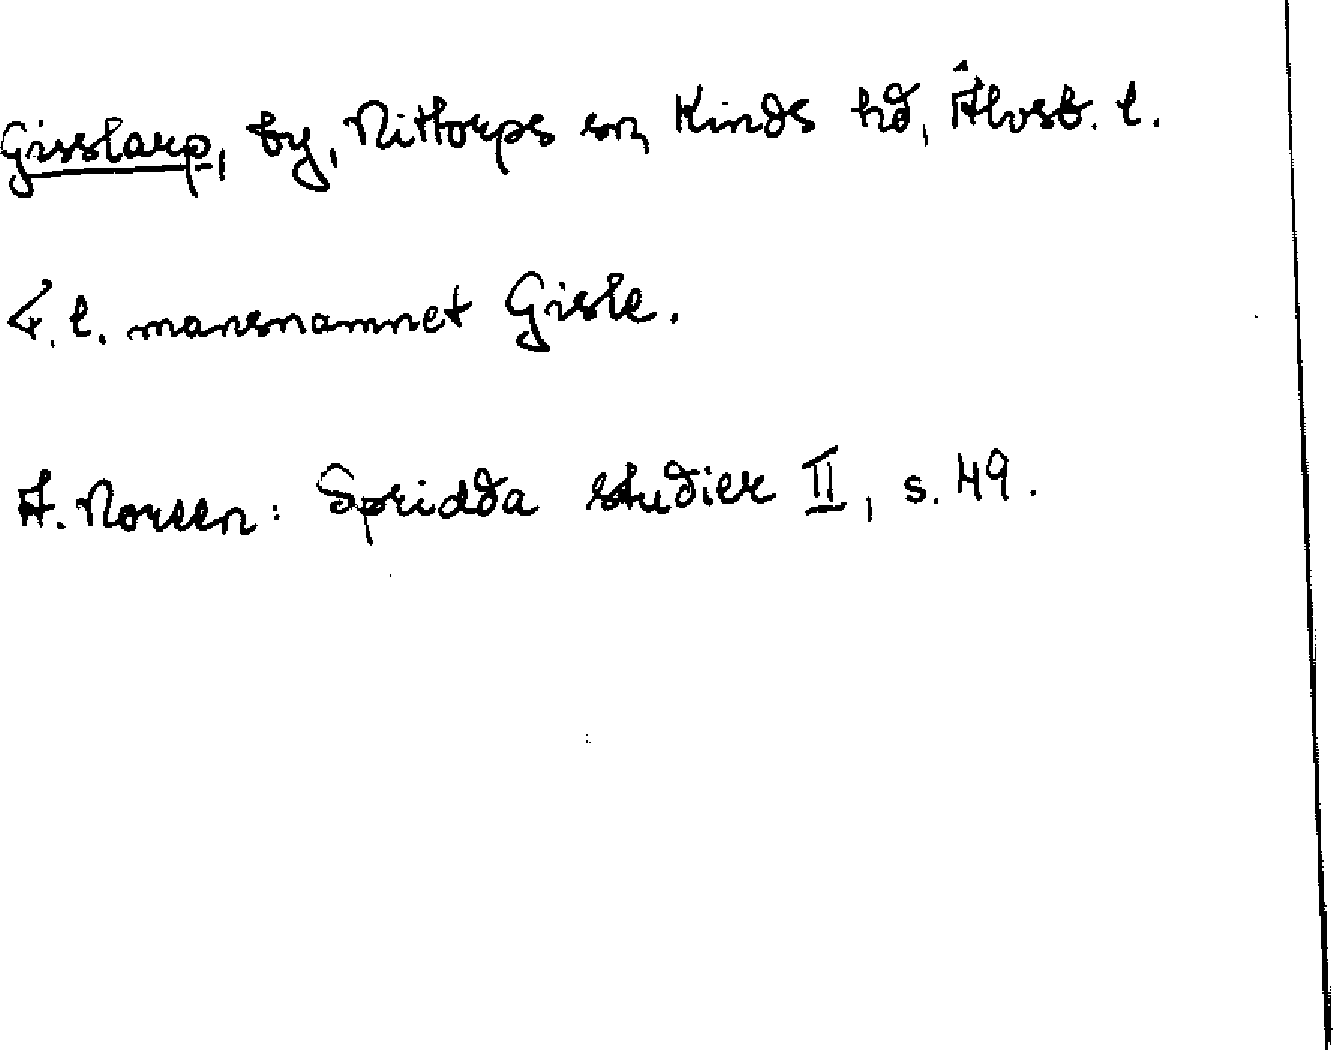 Gisslarp, by, Nittorps sn, Kinds hd, Älvsb. l.
F. l. mansnamnet Gisle.
A. Noreen: Spridda studier II, s. 49.